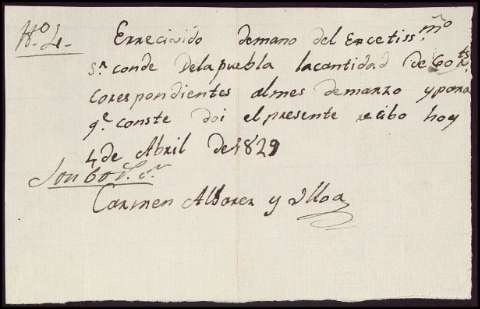 Nº 4.
Errecivido demano del Excetissmo
Sr conde Delapuebla lacantidad de 60 rs
corespondientes almes demarzo ypara
qe conste doi elpresente recibo hoy
4 de Abril de 1829
Son 60 rs vn
Carmen Albarez y Ulloa